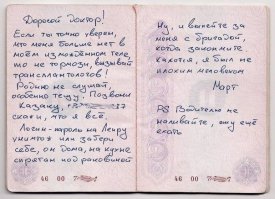 Дорогой Доктор!
Если ты точно уверен,
что меня больше нет в
моём измождённом теле,
но не тормози, вызывай
трансплантологов!
Родню не слушай,
особенно тещу. Позвони
Казаку,
скажи, что я всё.
Логин-пароль на Ленру
уничтож или забери
себе, он дома, на кухне
спрятан под раковиной
46 00
Ну, и выпейте за
меня с бригадой,
когда закончите
кажется, я был не
плохим человеком
Март
PS Водителю не
наливайте, ему ещё
ехать
46 00